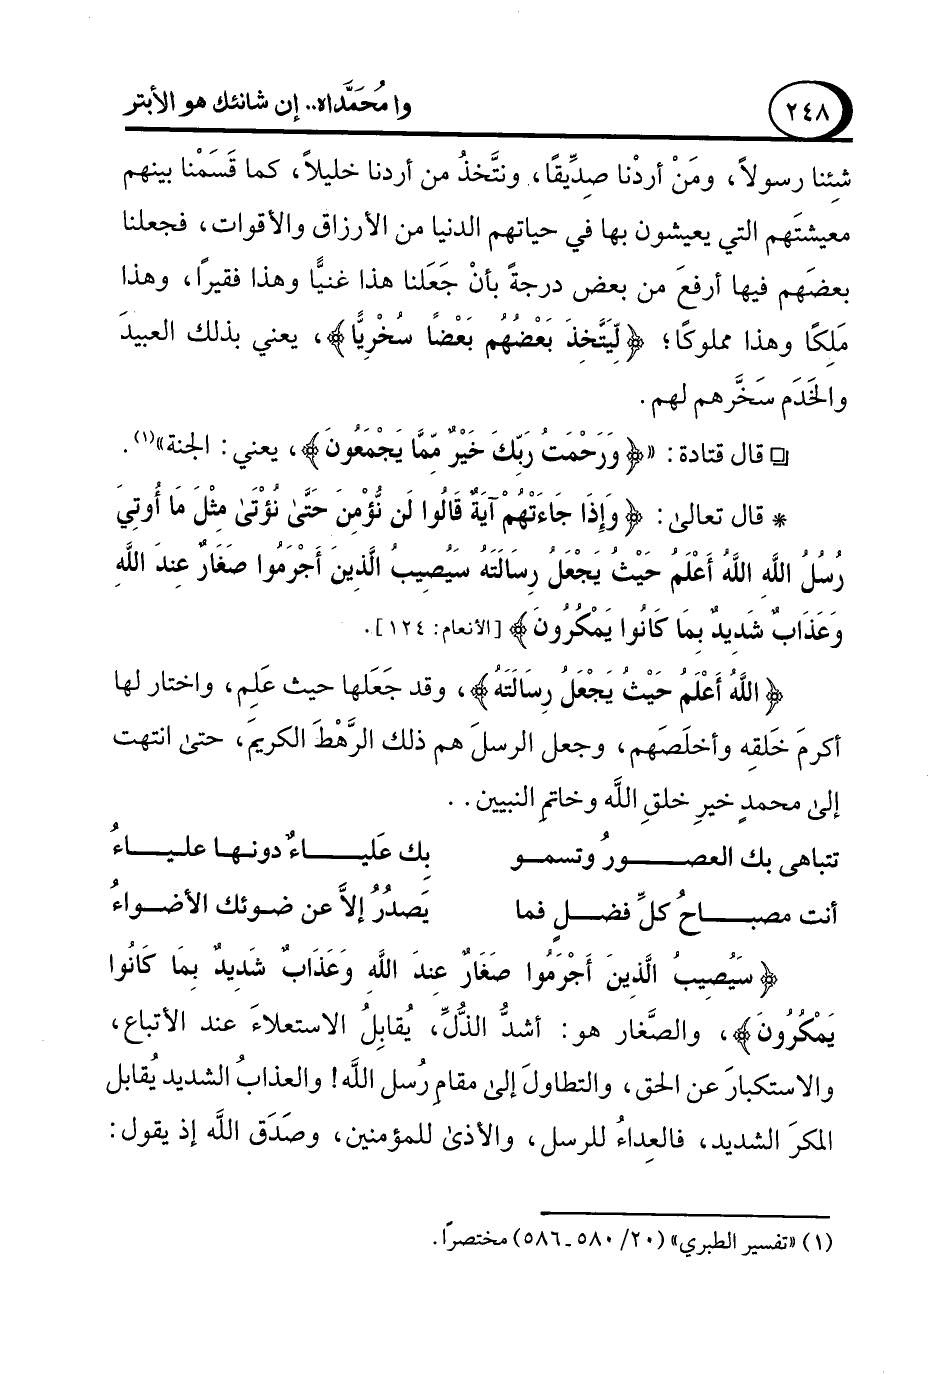 ٢٤٨
وا مُحَمَّداه.. إن شانئك هو الأبتر
شِئنا رسولاً، ومَنْ أردْنا صِدِّيقًا، ونتَّخذُ من أردنا خليلاً، كما قَسَمْنا بينهم
معيشتَهم التي يعيشون بها في حياتهم الدنيا من الأرزاق والأقوات، فجعلنا
بعضَهم فيها أرفعَ من بعض درجةً بأنْ جَعَلنا هذا غنيًّا وهذا فقيرًا، وهذا
مَلِكًا وهذا مملوكًا؛ ﴿لِّيَتَّخِذَ بَعْضُهُم بَعْضًا سُخْرِيًّا﴾، يعني بذلك العبيدَ
والخَدَم سَخَّرهم لهم.
❑ قال قتادة: «﴿وَرَحْمَتُ رَبِّكَ خَيْرٌ مِّمَّا يَجْمَعُونَ﴾، يعني: الجنة»(١).
* قال تعالىٰ: ﴿وَإِذَا جَاءَتْهُمْ آيَةٌ قَالُوا لَن نُّؤْمِنَ حَتَّىٰ نُؤْتَىٰ مِثْلَ مَا أُوتِيَ
رُسُلُ اللَّهِ اللَّهُ أَعْلَمُ حَيْثُ يَجْعَلُ رِسَالَتَهُ سَيُصِيبُ الَّذِينَ أَجْرَمُوا صَغَارٌ عِندَ اللَّهِ
وَعَذَابٌ شَدِيدٌ بِمَا كَانُوا يَمْكُرُونَ﴾ [الأنعام: ١٢٤].
﴿اللَّهُ أَعْلَمُ حَيْثُ يَجْعَلُ رِسَالَتَهُ﴾، وقد جَعَلها حيث عَلِم، واختار لها
أكرمَ خَلقِه وأخلَصَهم، وجعل الرسلَ هم ذلك الرَّهْطَ الكريمَ، حتىٰ انتهت
إلىٰ محمدٍ خيرِ خلقِ اللَّه وخاتمِ النبيين..
تتباهى بك العصـــــورُ وتسمـو بك عَليـــاءٌ دونـها عليـــاءُ
أنت مصبــــاحُ كلِّ فضـــلٍ فما يَصدُرُ إلاَّ عن ضوئك الأضـواءُ
﴿سَيُصِيبُ الَّذِينَ أَجْرَمُوا صَغَارٌ عِندَ اللَّهِ وَعَذَابٌ شَدِيدٌ بِمَا كَانُوا
يَمْكُرُونَ﴾، والصَّغار هو: أشدُّ الذُّلِّ، يُقابِلُ الاستعلاءَ عند الأتباع،
والاستكبارَ عن الحق، والتطاولَ إلىٰ مقامِ رُسل اللَّه! والعذابُ الشديد يُقابل
المكرَ الشديد، فالعِداءُ للرسل، والأذىٰ للمؤمنين، وصَدَق اللَّه إذ يقول:
(١) «تفسير الطبري» (٢٠/ ٥٨٠ـ٥٨٦) مختصرًا.